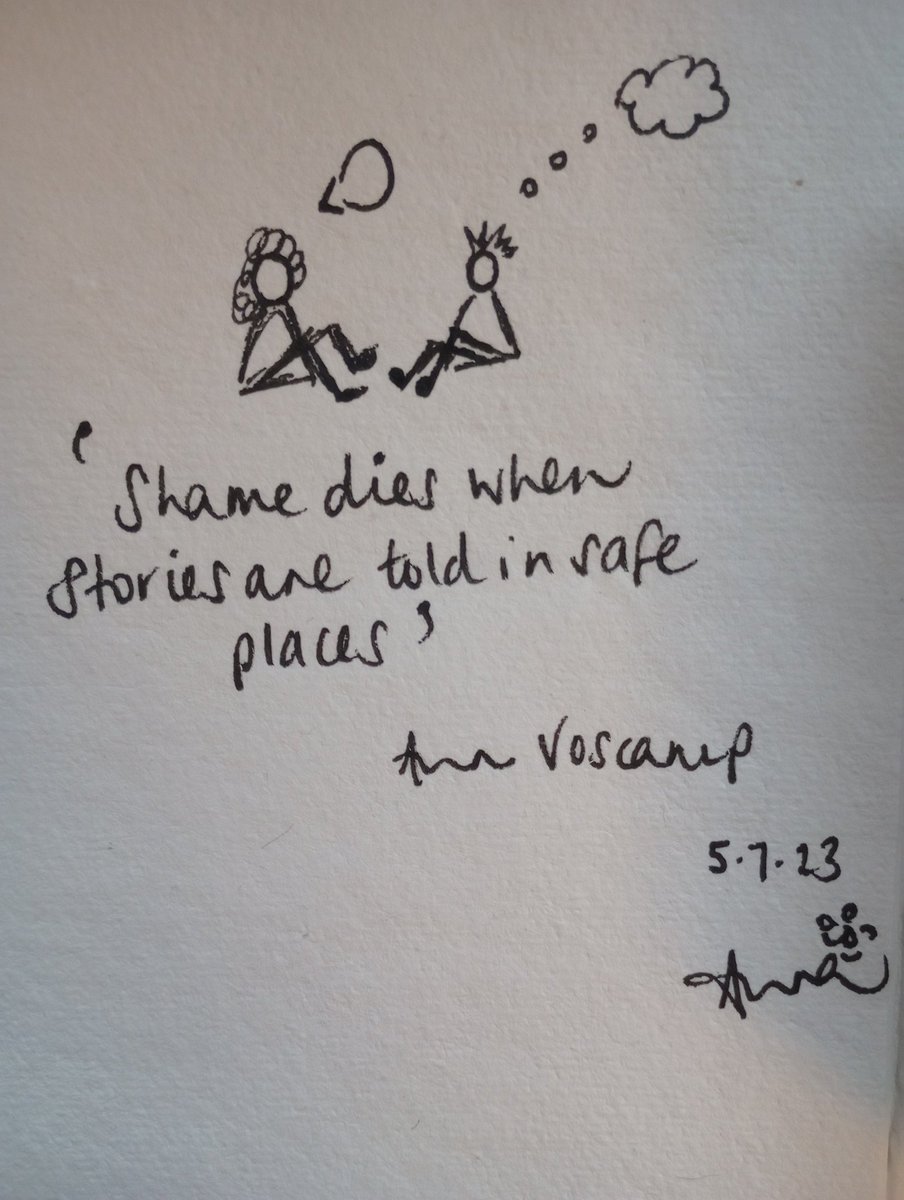 'Shame dies when
stories are told in safe
places'
Ann Voscamp
5.7.23
Anna